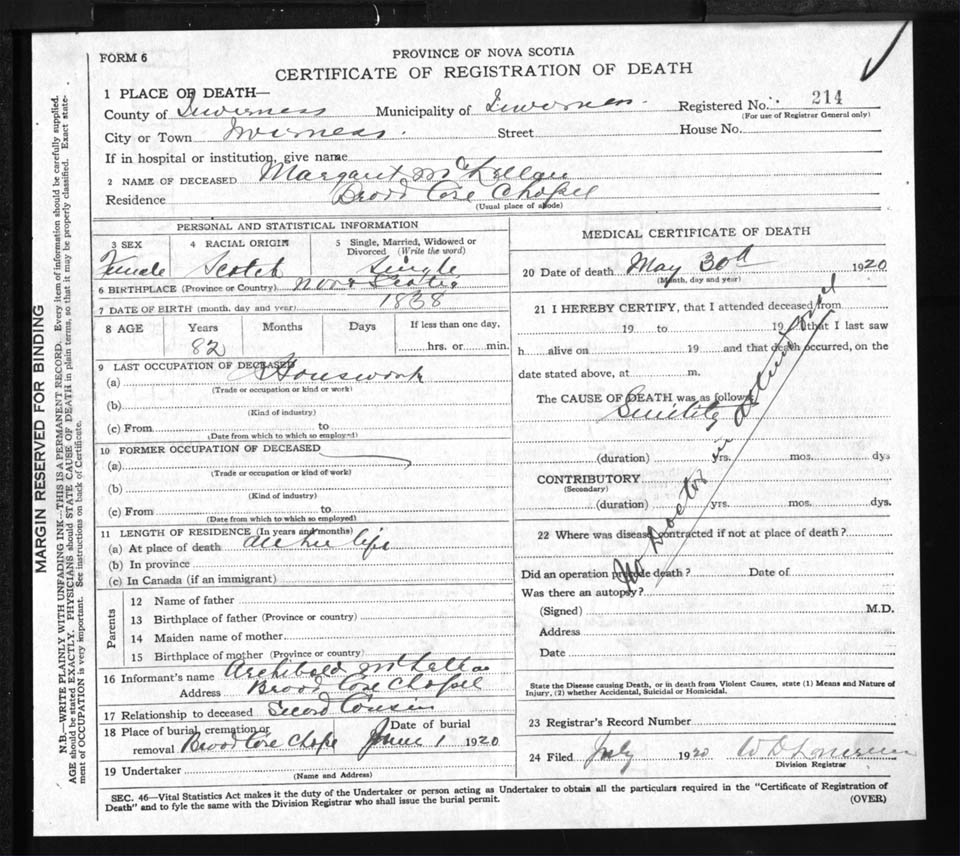 FORM 6
PROVINCE OF NOVA SCOTIA
CERTIFICATE OF REGISTRATION OF DEATH
1 PLACE OF DEATH—
County of Inverness Municipality of Inverness Registered No. 214
(For use of Registrar General only)
City or Town Inverness Street House No.
If in hospital or institution, give name
2 NAME OF DECEASED Margaret McKellan
Residence Broad Cove Chapel
(Usual place of abode)
PERSONAL AND STATISTICAL INFORMATION
3 SEX 4 RACIAL ORIGIN 5 Single, Married, Widowed or Divorced (Write the word)
Female Scotch Single
6 BIRTHPLACE (Province or Country) Nova Scotia
7 DATE OF BIRTH (month, day and year) 1838
8 AGE Years Months Days If less than one day,
82 hrs. or min.
9 LAST OCCUPATION OF DECEASED
(a) Housework
(Trade or occupation or kind or work)
(b)
(Kind of industry)
(c) From to
(Date from which to which so employed)
10 FORMER OCCUPATION OF DECEASED
(a)
(Trade or occupation or kind of work)
(b)
(Kind of industry)
(c) From to
(Date from which to which so employed)
11 LENGTH OF RESIDENCE (In years and months)
(a) At place of death All her life
(b) In province
(c) In Canada (if an immigrant)
Parents
12 Name of father
13 Birthplace of father (Province or country)
14 Maiden name of mother
15 Birthplace of mother (Province or country)
16 Informant's name Archibald
Address Broad Cove Chapel
17 Relationship to deceased Second Cousin
18 Place of burial, cremation or removal Broad Cove Chape Date of burial June 1 1920
19 Undertaker
(Name and Address)
MEDICAL CERTIFICATE OF DEATH
20 Date of death May 30th 1920
(Month, day and year)
21 I HEREBY CERTIFY, that I attended deceased from
19 to 19 that I last saw
h alive on 19 and that death occurred, on the
date stated above, at m.
The CAUSE OF DEATH was as follows
Senility
No Doctor in
(duration) yrs. mos. dys
CONTRIBUTORY
(Secondary)
(duration) yrs. mos. dys.
22 Where was disease contracted if not at place of death?
Did an operation precede death? Date of
Was there an autopsy?
(Signed) M.D.
Address
Date
State the Disease causing Death, or in death from Violent Causes, state (1) Means and Nature of
Injury, (2) whether Accidental, Suicidal or Homicidal.
23 Registrar's Record Number
24 Filed July 1920
Division Registrar
SEC. 46—Vital Statistics Act makes it the duty of the Undertaker or person acting as Undertaker to obtain all the particulars required in the "Certificate of Registration of
Death" and to fyle the same with the Division Registrar who shall issue the burial permit.
(OVER)
MARGIN RESERVED FOR BINDING
N.B.—WRITE PLAINLY WITH UNFADING INK—THIS IS A PERMANENT RECORD. Every item of information should be carefully supplied.
AGE should be stated EXACTLY. PHYSICIANS should STATE CAUSE OF DEATH in plain terms, so that it may be properly classified. Exact state-
ment of OCCUPATION is very important. See instructions on back of Certificate.